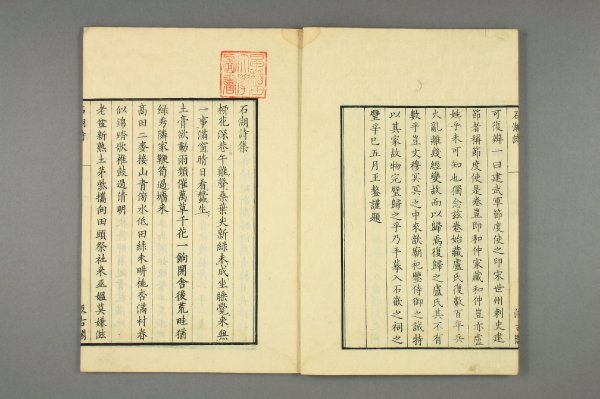 可復辨一曰建武軍節度使之印宋世州刺史建
節者稱節度使是卷豈即和仲家藏和仲豈亦盧
姓乎未可知也獨念茲卷始藏盧氏復數百年兵
火亂離幾經變故而以歸焉復歸之盧氏其不有
數乎豈文穆冥冥之中來歆廟祀鑒侍御之誠特
以其家故物完璧歸之乎乃手摹入石嵌之祠之
壁辛巳五月王鏊謹題
石湖詩集
柳花深巷午雞聲桑葉尖新綠未成坐睡覺來無
一事滿窗晴日看蠶生
土膏欲動雨頻催萬草千花一餉開舍後荒畦猶
綠秀隣家鞭筍過墻來
高田二麥接山青傍水低田綠未畊桃杏滿村春
似錦踏歌椎鼓過清明
老盆新熟土茅柴攜向田頭祭社來巫媼莫嫌滋